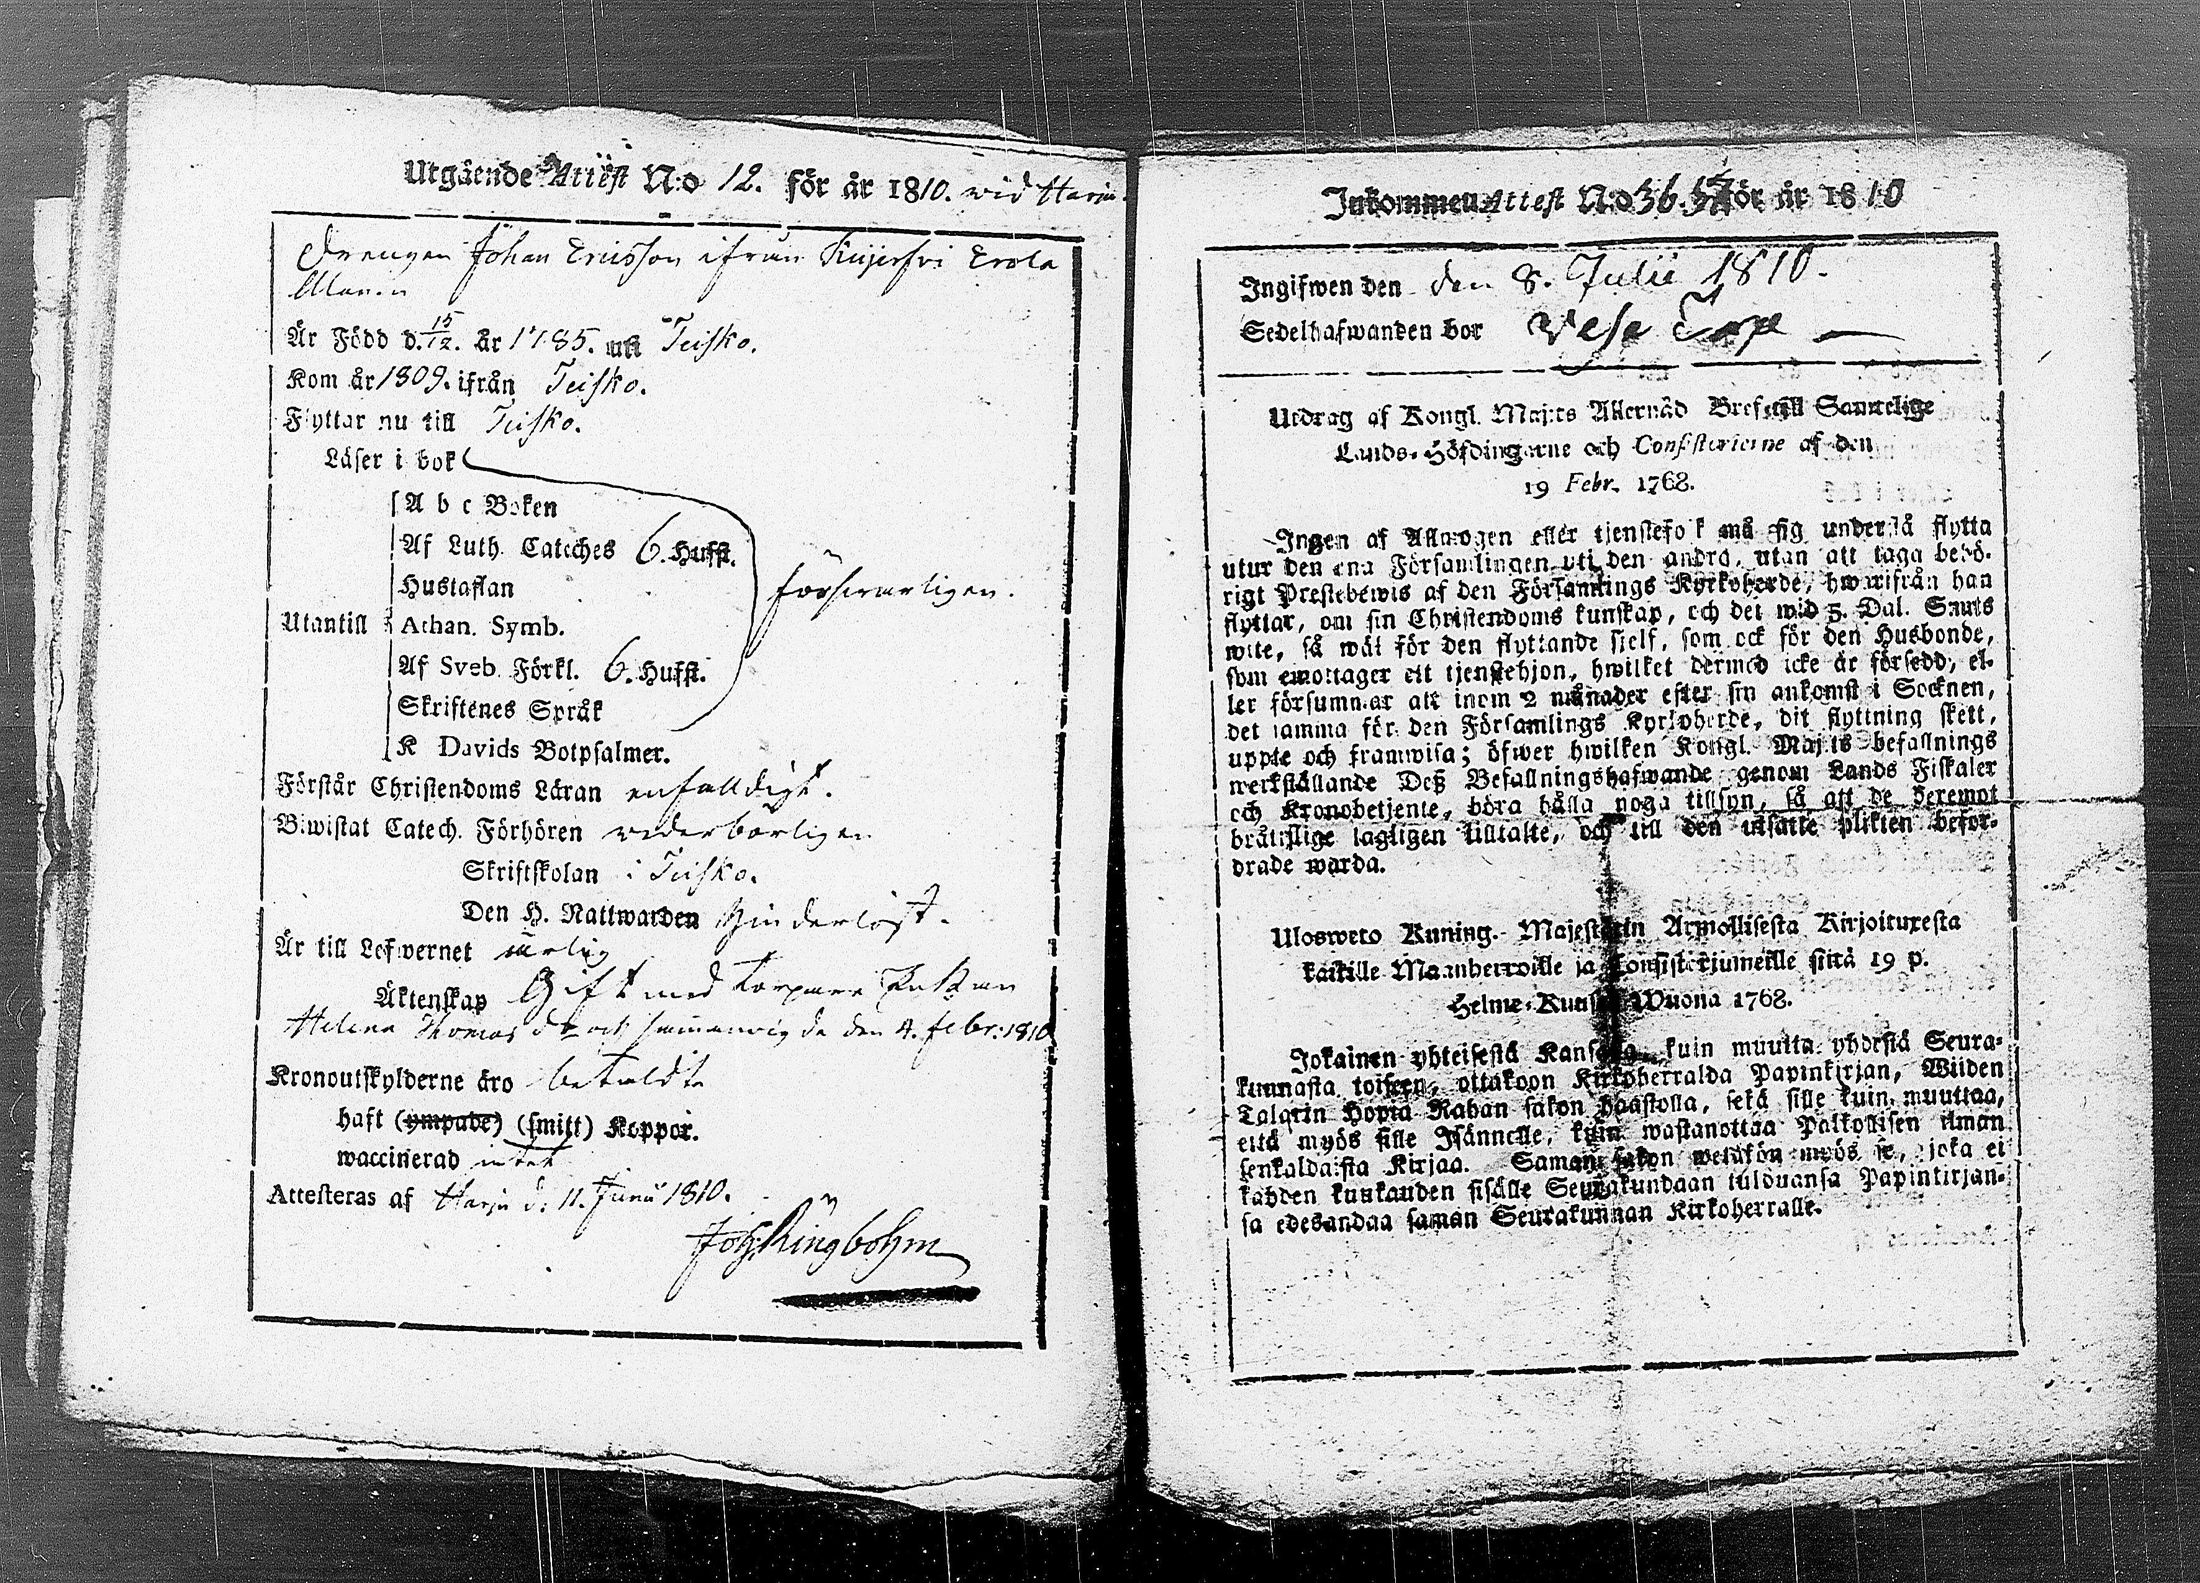 Utgående Attest N:o 12. för år 1810. wid Harju.
Drengen Johan Ericsson ifrån Erola
Är Född d. 15/12. år 1785. uti Teisko.
Kom år 1809. ifrån Teisko.
Flyttar nu till Teisko.
Läser i bok
A b c Boken
Af Luth. Cateches 6. Hufst.
Hustaflan
försvarligen.
Utantill
Athan. Symb.
Af Sveb. Förkl. 6. Hufst.
Skriftenes Språk
K Davids Botpsalmer.
Förstår Christendoms Läran enfalldigt.
Biwistat Catech. Förhören wederbörligen
Skriftskolan i Teisko.
Den H. Nattwarden hinderlöst.
Är till Lefwernet ärlig
Äktenskap Gift med Torpare Enkan
Helena Thomas dr och sammanvigde den 4. Febr. 1810
Kronoutskylderne äro betaldte
haft (ympade) (smitt) Koppor.
waccinerad intet
Attesteras af Harju d. 11. Junii 1810.
Joh. Ringbohm
Inkommen Attest N:o 56. 57 för år 1810
Ingifwen den den 8. Julii 1810.
Sedelhafwanden bor
Utdrag af Kongl. Maj:ts Allernåd Bref till Samtelige
Lands-Höfdingarne och Consistorierne af den
19 Febr. 1768.
Ingen af Allmogen eller tjenstefolk må sig understå flytta
utur den ena Församlingen uti den andra, utan att taga behö-
rigt Prestebewis af den Församlings Kyrkoherde, hwarifrån han
flyttar, om sin Christendoms kunskap, och det wid 5. Dal. Smts
wite, så wäl för den flyttande sielf, som ock för den Husbonde,
som emottager ett tjenstehjon, hwilket dermed icke är försedd, el-
ler försummar att inom 2 månader efter sin ankomst i Socknen,
det samma för den Församlings Kyrkoherde, dit flyttning skett,
uppte och framwisa; öfwer hwilken Kongl. Maj:ts befallnings
werkställande Deß Befallningshafwande genom Lands Fiskaler
och Kronobetjente, böra hålla noga tillsyn, så att de deremot
bråttslige lagligen tilltalte, och till den utsatte plikten befor-
drade warda.
Ulosweto Kuning. Majestätin Armollisesta Kirjoituxesta
kaikille Maanherroille ja Consistoriumeille siitä 19 p.
Helme-Kuusa Wuona 1768.
Jokainen yhteisestä Kansasta, kuin muutta yhdestä Seura-
kunnasta toiseen, ottakoon Kirkoherralda Papinkirjan, Wiiden
Talarin Hopia Rahan sakon haastolla, sekä sille kuin muuttaa,
että myös sille Isännelle, kuin wastanottaa Palkollisen ilman
senkaldaista Kirjaa. Saman sakon wetäkön myös se, joka ei
kahden kuukauden sisälle Seurakundaan tulduansa Papinkirjan-
sa edesandaa saman Seurakunnan Kirkoherralle.